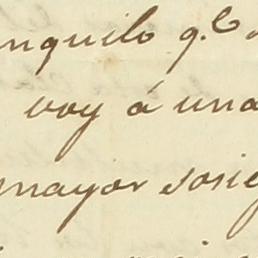 nquilo q.e
voy á una
mayor sosie